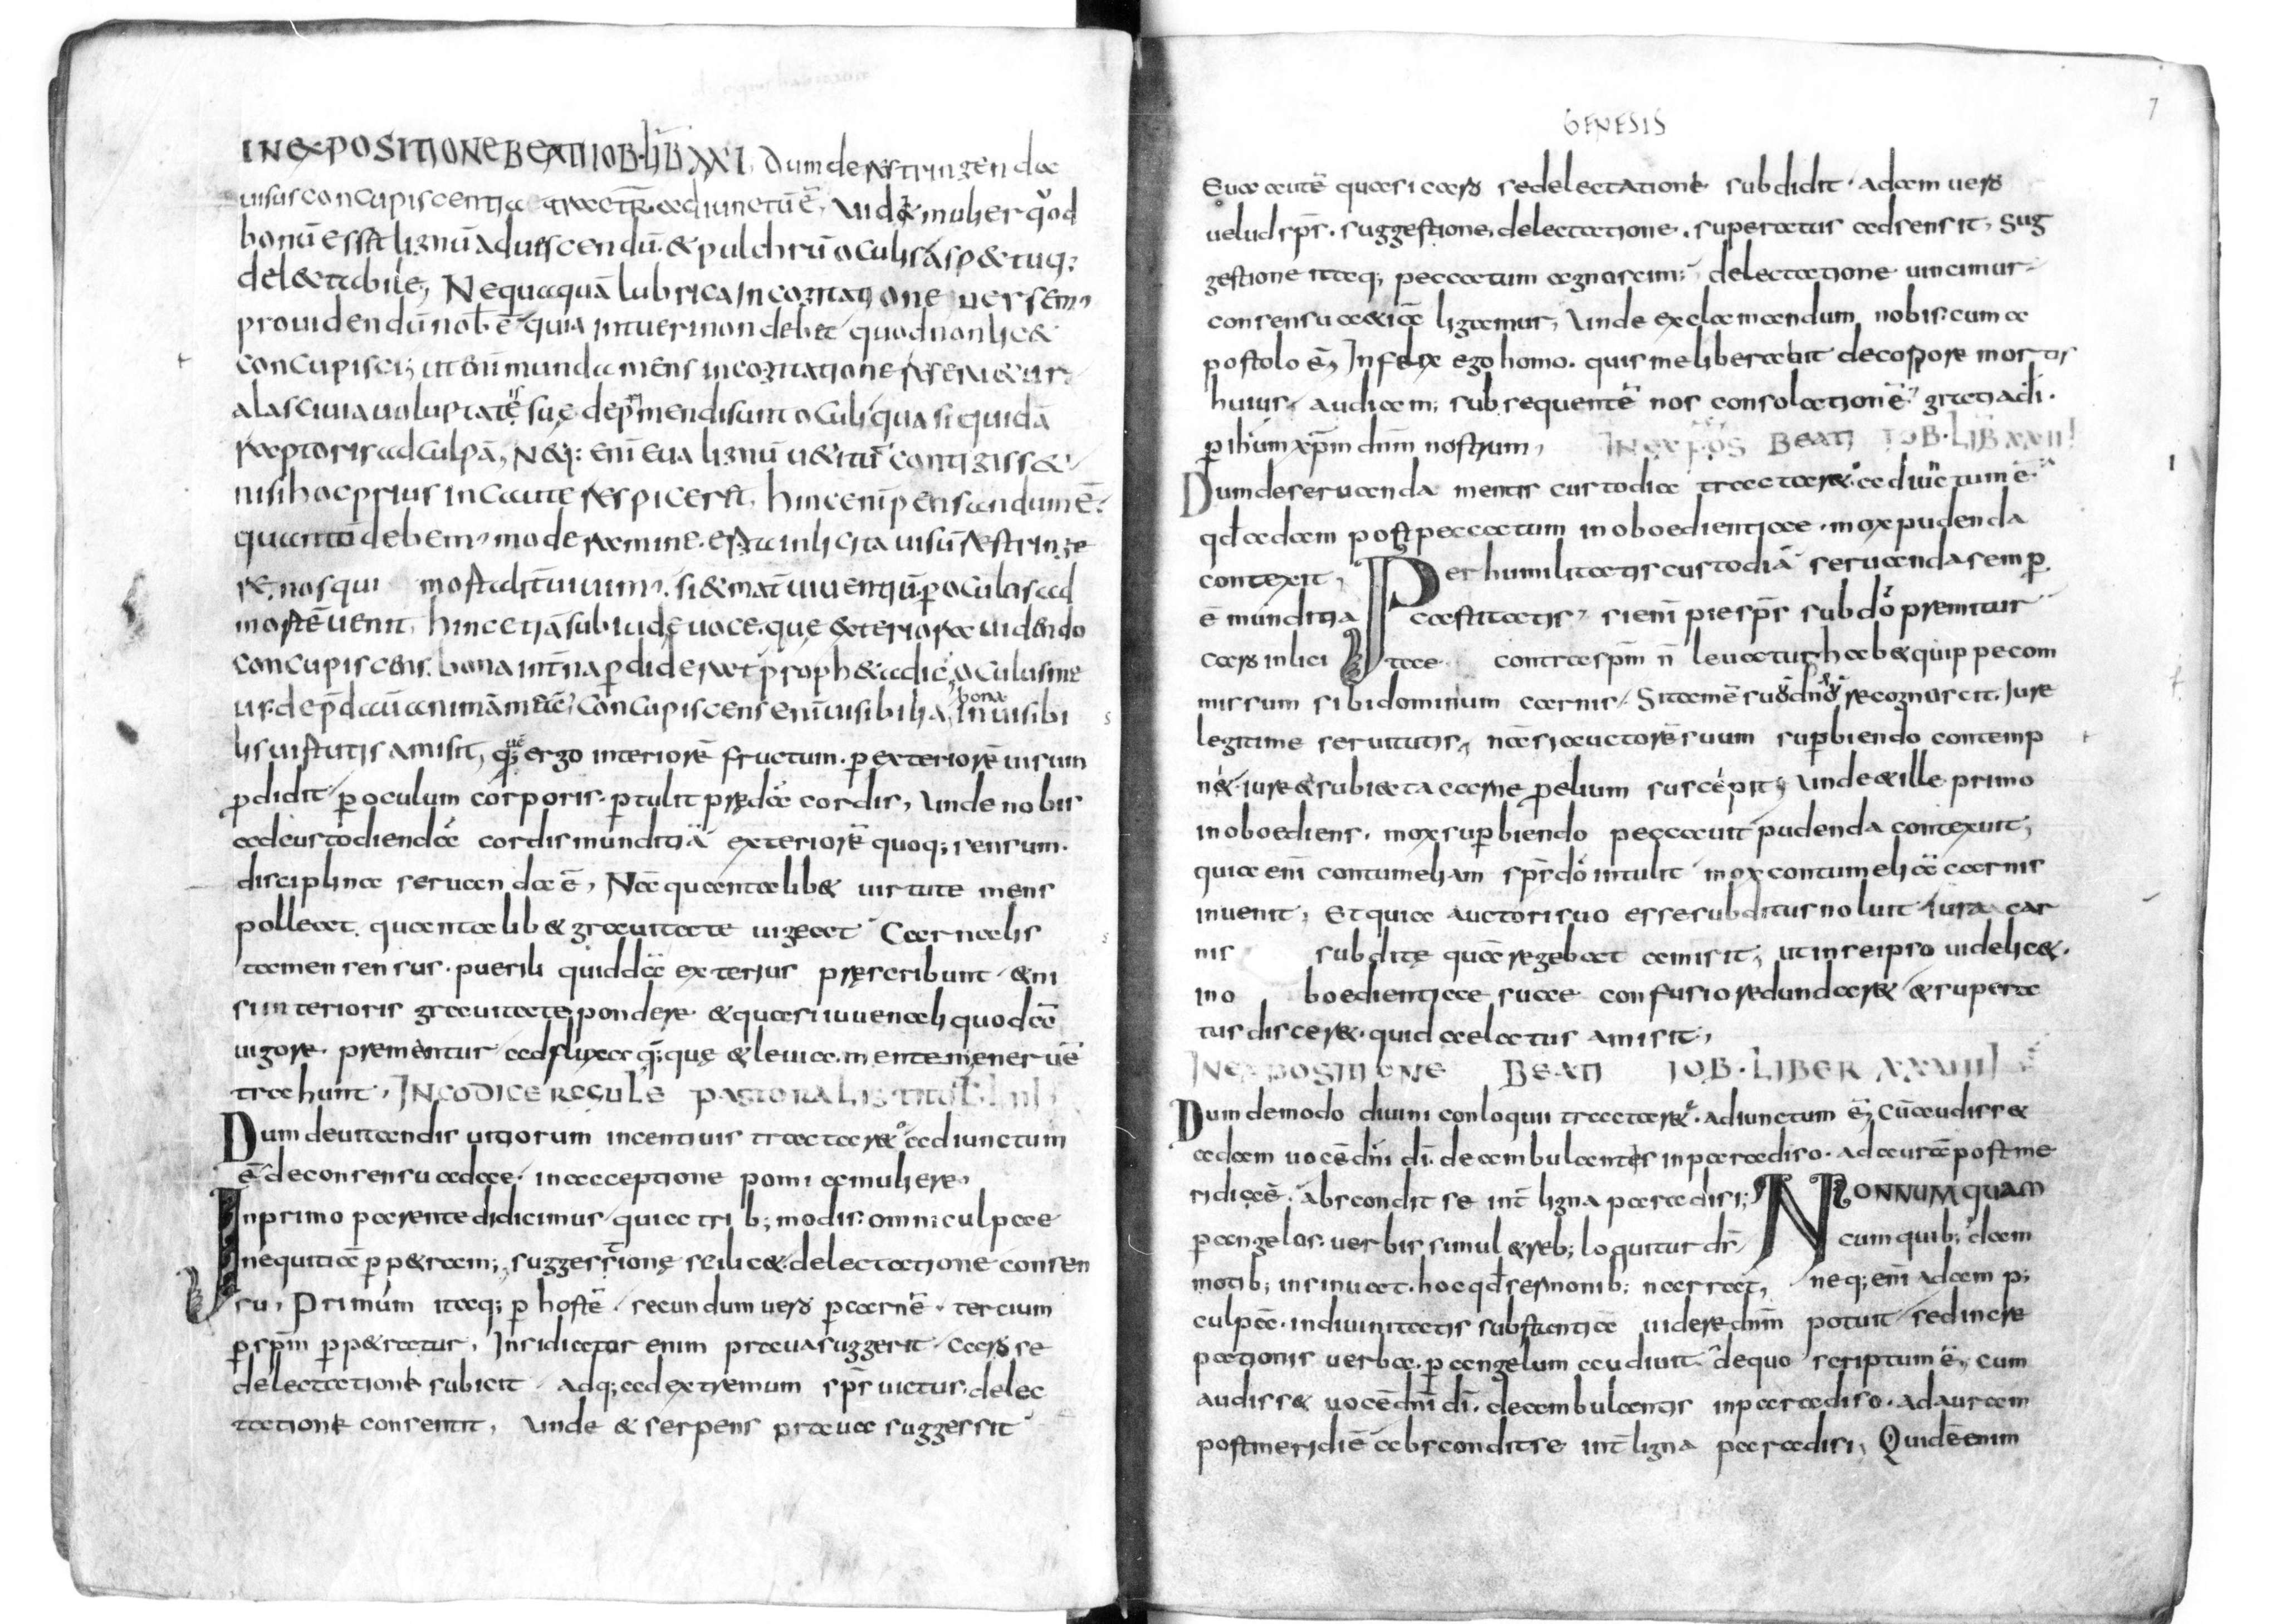 IN EXPOSITIONE BEATI IOB · LIB XXI, Dum de restringenda
uisus concupiscentia tractar& adiunctū ē, Uid& mulier quod
bonū ess& lignū ad uescendū · & pulchrū oculis asp&tuq;
del&tabile, Nequaquā lubrica in cogitatione uersem̄
prouidendū nob̄ ē quia intueri non deb& quod non lic&
concupisci, ut eni munda mens in cogitatione seru&ur
a lasciuia uoluptatē suę depmendi sunt oculi quasi quidā
raptoris ad culpā, N&q: eni Eua lignū u&itū contigiss&
nisi hoc prius incaute respicer&, hinc enī pensandum ē
quantū debem' moderamine · erga inlicita uisū restringe
re, nos qui mortalit̄ uiuim' · si & mat̄ uiuentiū · p oculos ad
mortē uenit, hinc etiā sub iudę uoce · quę exteriora uidendo
concupiscens · bona int̄na pdiderat proph&a dic̄, oculus me
us depdauit animam meā, concupiscens enī uisibilia, inuisibi
bona
lis uirtutis amisit, quę ergo interiorē fructum · p exteriorē uisum
pdidit p oculum corporis · ptulit prędā cordis, Unde nobis
ad custodiendā cordis munditiā exteriorū quoq; sensum ·
disciplina seruanda ē, Nā quantalib& uirtute mens
polleat, quantalib& grauitate uigeat Carnalis
tamen sensus · puerili quiddā exterius pręscribunt & ni
si interioris grauitate pondere & quasi iuuenali quodā
uigore prementur ad fluxa q̄;que & leuia · mentem eneruē
trahunt, IN CODICE REGULE PASTORALIS TITOL LIII
Dum de uitandis uitiorum incentiuis tractar& · adiunctum
ē de consensu adae in acceptione pomi a muliere,
In primo parente didicimus quia trib; modis omni culpae
nequitiā p p&ram; suggestione scilic& · delectatione consen
su, Primum itaq; p hostē secundum uero p carnē · tercium
p spm̄ p p&ratur, Insidiator enim praua suggerit Caro se
delectatione subicit Adq; ad extremum sps̄ uictus · delec
tatione consentit, Unde & serpens praua suggessit
GENESIS
7
Eua autē quasi caro se delectatione subdidit · adam uero
uelud sps̄ · suggestione · delectatione · superatus adsensit, Sug
gestione itaq; peccatum agnoscim; delectatione uincimur
consensu a&iā ligamur, Unde exclamandum nobis cum a
postolo ē, Infelix ego homo · quis me liberabit de corpore mortis
huius, audiam; subsequentē nos consolationē gratia di ·
p ihūm xp̄m dn̄m nostrum, IN EXPOS BEATI IOB · LIB XXVI
Dum de seruanda mentis custodia tractar& · adiūctum ē
qd̄ adam post peccatum inoboedientiae · mox pudenda
contexit, Per humilitatis custodiā seruanda semp
ē munditia castitatis, si enī pie sps̄ sub dō premitur
caro inlicitae contra spm̄ n̄ leuatur hab& quippe com
missum sibi dominum carnis, Si tamē suo dn̄o recognoscit · Iure
legitime seruitutis, nā si auctorē suum supbiendo contemp
n& · iure & subiecta carne pelium suscepit, Unde & ille primo
inoboediens · mox supbiendo peccauit pudenda contexuit,
quia enī contumeliam sps̄ dō intulit mox contumeliā carnis
inuenit, Et quia auctori suo esse subditus noluit iura car
nis subditę quā regebat amisit, ut in se ipso uidelic& ·
ino boedientiae suae confusio redundar& & supera
tus discer& · quid aelatus amisit,
IN EXPOSITIONE BEATI IOB · LIBER XXVIIII
Dum de modo diuini conloquii tractar& · adiunctum ē, Cū audiss&
adam uocē dn̄i dī · deambulantis in paradiso · ad aurā post me
ridiē · abscondit se int̄ ligna paradisi; NONNUMQUAM
p angelos · uerbis simul & reb; loquitur dr̄ cum quib; dam
motib; insinuat · hoc qd̄ sermonib; narrat, neq; enī adam p;
culpā · in diuinitatis substantiā uidere dn̄m potuit sed incre
pationis uerba · p angelum audiuit de quo scriptum ē, cum
audiss& uocē dn̄i dī · deambulantis in paradiso · ad auram
post meridiē abscondit se int̄ ligna paradisi, Quid ē enim